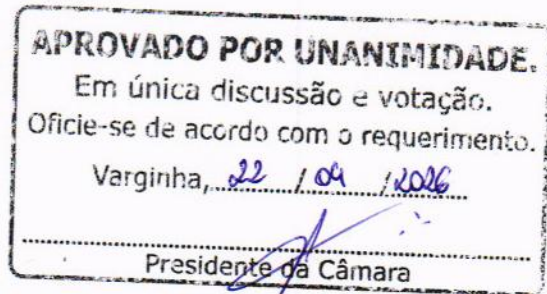 APROVADO POR UNANIMIDADE.
Em única discussão e votação.
Oficie-se de acordo com o requerimento.
Varginha, 22 / 04 / 2026
Presidente da Câmara